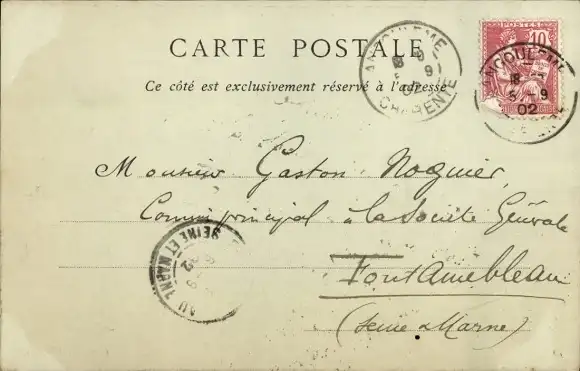 CARTE POSTALE
Ce côté est exclusivement réservé à l'adresse
ANGOULEME
CHARENTE
10
ANGOULEME
5 - 9
02
Monsieur Gaston Noguier,
Commis principal à la Société Générale
Fontainebleau
(Seine & Marne)
SEINE ET MARNE